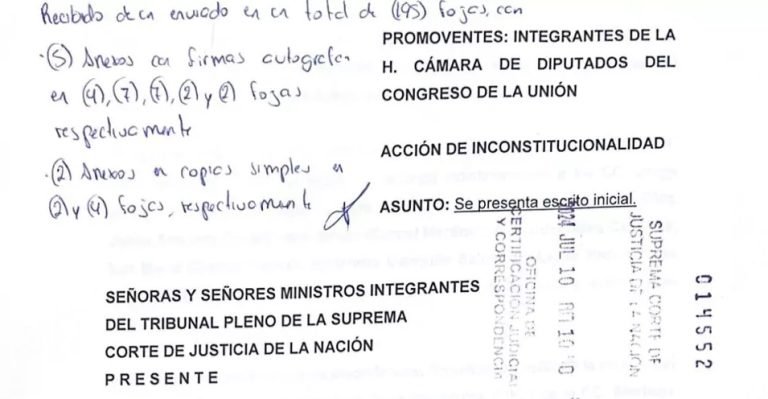 Recibido de un enviado en un total de (195) fojas, con
·(5) Anexos con firmas autógrafas
en (4), (7), (7), (2) y (2) fojas
respectivamente
·(2) Anexos en copias simples en
(2) y (4) fojas, respectivamente
PROMOVENTES: INTEGRANTES DE LA
H. CÁMARA DE DIPUTADOS DEL
CONGRESO DE LA UNIÓN
ACCIÓN DE INCONSTITUCIONALIDAD
ASUNTO: Se presenta escrito inicial.
SEÑORAS Y SEÑORES MINISTROS INTEGRANTES
DEL TRIBUNAL PLENO DE LA SUPREMA
CORTE DE JUSTICIA DE LA NACIÓN
P R E S E N T E
SUPREMA CORTE DE
JUSTICIA DE LA NACIÓN
JUL 10
OFICINA DE
CERTIFICACIÓN JUDICIAL
Y CORRESPONDENCIA
014552